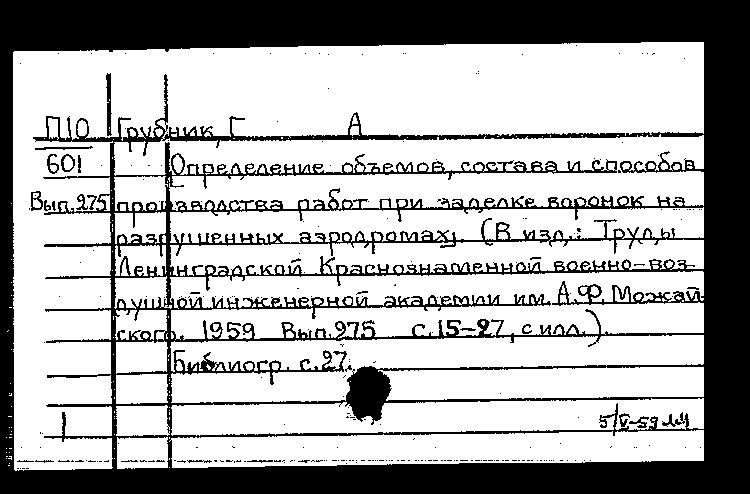 П10 Грубник, Г А
601 Определение объемов, состава и способов
Вып.275 производства работ при заделке воронок на
разрушенных аэродромах. (В изд.: Труды
Ленинградской Краснознаменной военно-воз-
душной инженерной академии им. А.Ф. Можай-
ского. 1959 Вып.275 с.15-27, с илл.).
Библиогр. с.27.
1 5/V-59